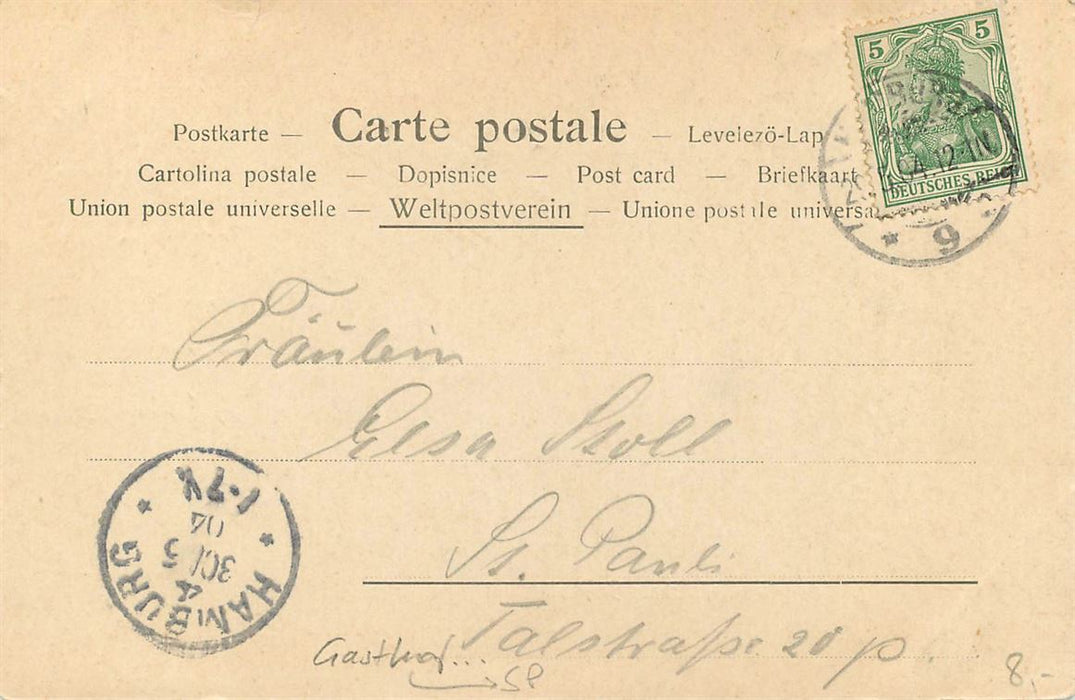 5 5
DEUTSCHES REICH
Postkarte — Carte postale — Levelező-Lap
Cartolina postale — Dopisnice — Post card — Briefkaart
Union postale universelle — Weltpostverein — Unione postale universa
04.12-1N
* 9
Fräulein
Elsa Stoll
St. Pauli
Talstraße 20 p.
HAMBURG
4
30/5
04
1-7V
Gasthof...
SP
8.-